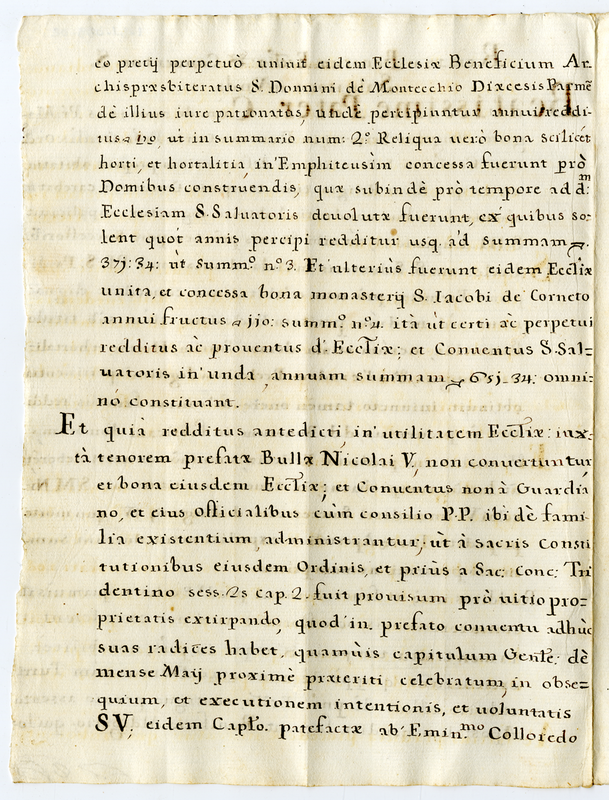 eo pretij perpetuò uniuit eidem Ecclesiæ Beneficium Ar-
chispræsbiteratus S. Donnini dè Montecchio Diæcesis Parmē
dè illius iure patronatus, unde percipiuntur annui reddi-
tus 170, ut in summario num: 2.º Reliqua uerò bona scilicet
horti, et hortalitia in'Emphiteusim concessa fuerunt prò
Domibus construendis, quæ subindè prò tempore ad d:m
Ecclesiam S. Saluatoris deuolutæ fuerunt, ex quibus so-
lent quot annis percipi redditur usq. ad summam
371:34: ùt summ.º n.º 3. Et ulteriùs fuerunt eidem Eccl̄iæ
unita, et concessa bona monasterij S. Iacobi de Corneto
annui fructus 110: summ.º n.º 4. ità ùt certi àc perpetui
redditus àc prouentus d. Eccl̄iæ: et Conuentus S. Sal=
uatoris in' unda annuam summam 651-34: omni-
nò constituant.
Et quià redditus antedicti in' utilitatem Eccl̄iæ: iux=
tà tenorem prefatæ Bullæ Nicolai V, non conuertuntur
et bona eiusdem Eccl̄iæ; et Conuentus non à Guardia
no, et eius officialibus cùm consilio P.P. ibi dè fami-
lia existentium administrantur, ùt à sacris Consti
tutionibus eiusdem Ordinis, et priùs a Sac: Conc: Tri
dentino sess. 25 cap. 2. fuit prouisum prò uitio pro=
prietatis extirpando, quod in. prefato conuentu adhùc
suas radices habet, quamùis capitulum Genl̄e: dè
mense Maij proximè præteriti celebratum, in obse=
quium, et executionem intentionis, et uoluntatis
S V, eidem Capl̄o. patefactæ ab' Emin.mo Colloredo